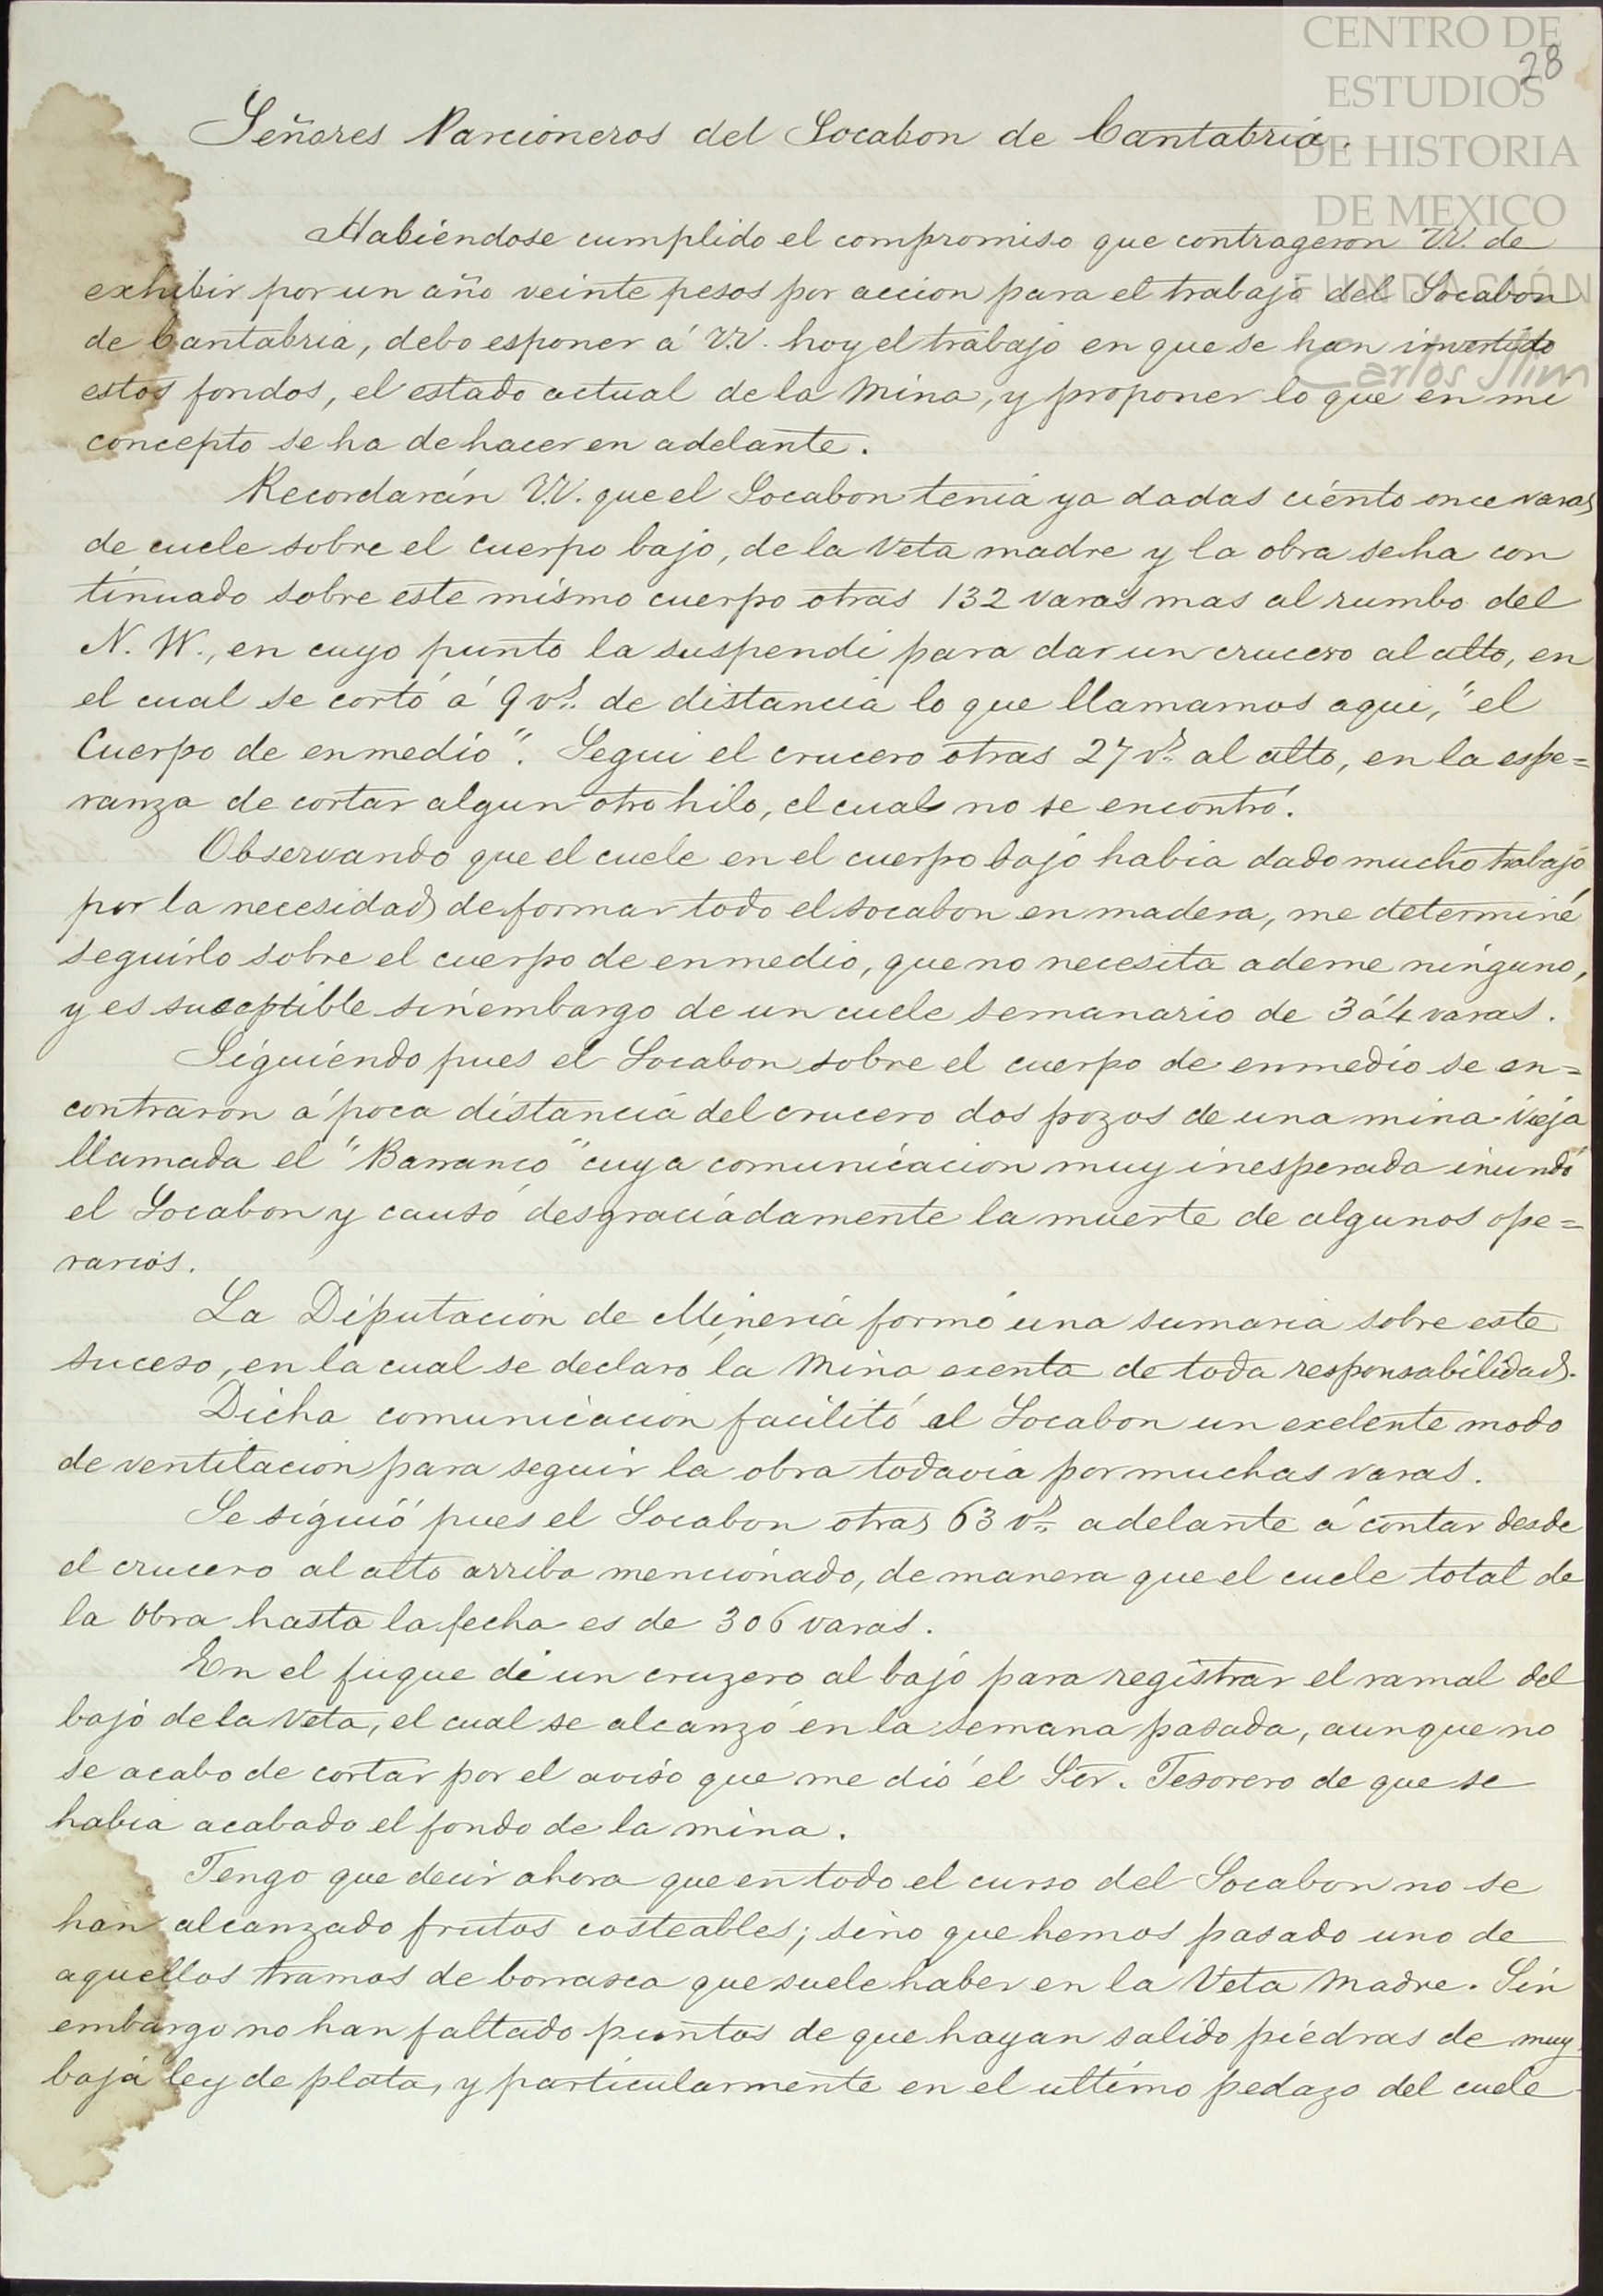 CENTRO DE
ESTUDIOS
DE HISTORIA
DE MEXICO
FUNDACIÓN
Carlos Slim
28
Señores Parcioneros del Socabon de Cantabria.
Habiéndose cumplido el compromiso que contrageron V.V. de
exhibir por un año veinte pesos por accion para el trabajo del Socabon
de Cantabria, debo esponer á V.V. hoy el trabajo en que se han invertido
estos fondos, el estado actual de la Mina, y proponer lo que en mi
concepto se ha de hacer en adelante.
Recordarán V.V. que el Socabon tenia ya dadas ciento once varas
de cuele sobre el cuerpo bajo, de la Veta madre y la obra se ha con
tinuado sobre este mismo cuerpo otras 132 varas mas al rumbo del
N. W., en cuyo punto la suspendi para dar un crucero al alto, en
el cual se cortó á 9 vs. de distancia lo que llamamos aqui, "el
Cuerpo de enmedio". Segui el crucero otras 27 vs. al alto, en la espe=
ranza de cortar algun otro hilo, el cual no se encontró.
Observando que el cuele en el cuerpo bajo habia dado mucho trabajo
por la necesidad de formar todo el socabon en madera, me determiné
seguirlo sobre el cuerpo de enmedio, que no necesita ademe ninguno,
y es suceptible sin embargo de un cuele semanario de 3 á 4 varas.
Siguiendo pues el Socabon sobre el cuerpo de enmedio se en=
contraron á poca distancia del crucero dos pozos de una mina vieja
llamada el "Barranco" cuya comunicacion muy inesperada inundó
el Socabon y causó desgraciadamente la muerte de algunos ope=
rarios.
La Diputacion de Mineria formó una sumaria sobre este
suceso, en la cual se declaró la Mina exenta de toda responsabilidad.
Dicha comunicacion facilitó al Socabon un exelente modo
de ventilacion para seguir la obra todavia por muchas varas.
Se siguió pues el Socabon otras 63 vs. adelante á contar desde
el crucero al alto arriba mencionado, de manera que el cuele total de
la Obra hasta la fecha es de 306 varas.
En el fuque di un cruzero al bajo para registrar el ramal del
bajo de la Veta, el cual se alcanzó en la semana pasada, aunque no
se acabo de cortar por el aviso que me dió el Sor. Tesorero de que se
habia acabado el fondo de la mina.
Tengo que decir ahora que en todo el curso del Socabon no se
han alcanzado frutos costeables; sino que hemos pasado uno de
aquellos tramos de borrasca que suele haber en la Veta Madre. Sin
embargo no han faltado puntos de que hayan salido piedras de muy
baja ley de plata, y particularmente en el ultimo pedazo del cuele